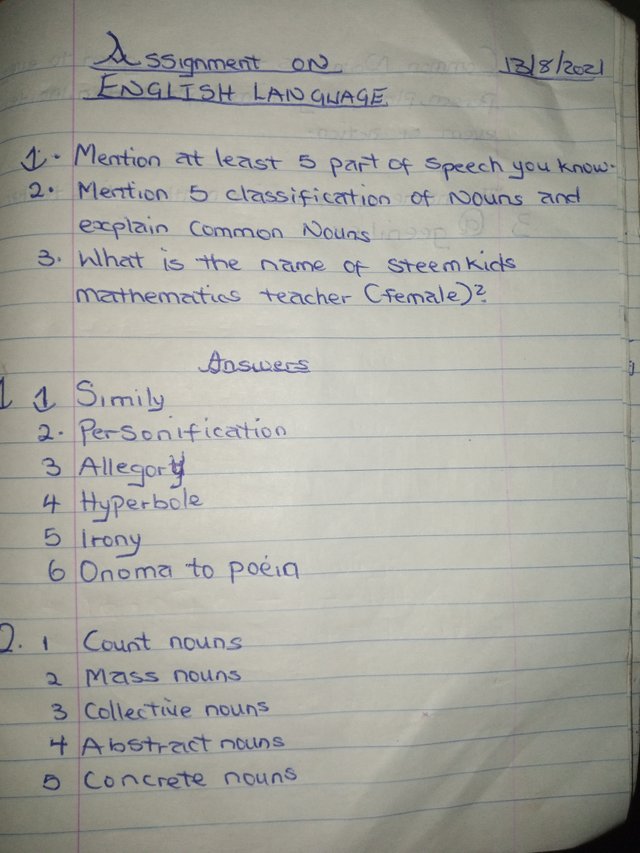 Assignment ON 13/8/2021
ENGLISH LANGUAGE
1. Mention at least 5 part of speech you know.
2. Mention 5 classification of Nouns and
explain Common Nouns
3. What is the name of steemkids
mathematics teacher (female)?
Answers
1 1 Simily
2. Personification
3 Allegory
4 Hyperbole
5 Irony
6 Onoma to poeia
2. 1 Count nouns
2 Mass nouns
3 Collective nouns
4 Abstract nouns
5 Concrete nouns